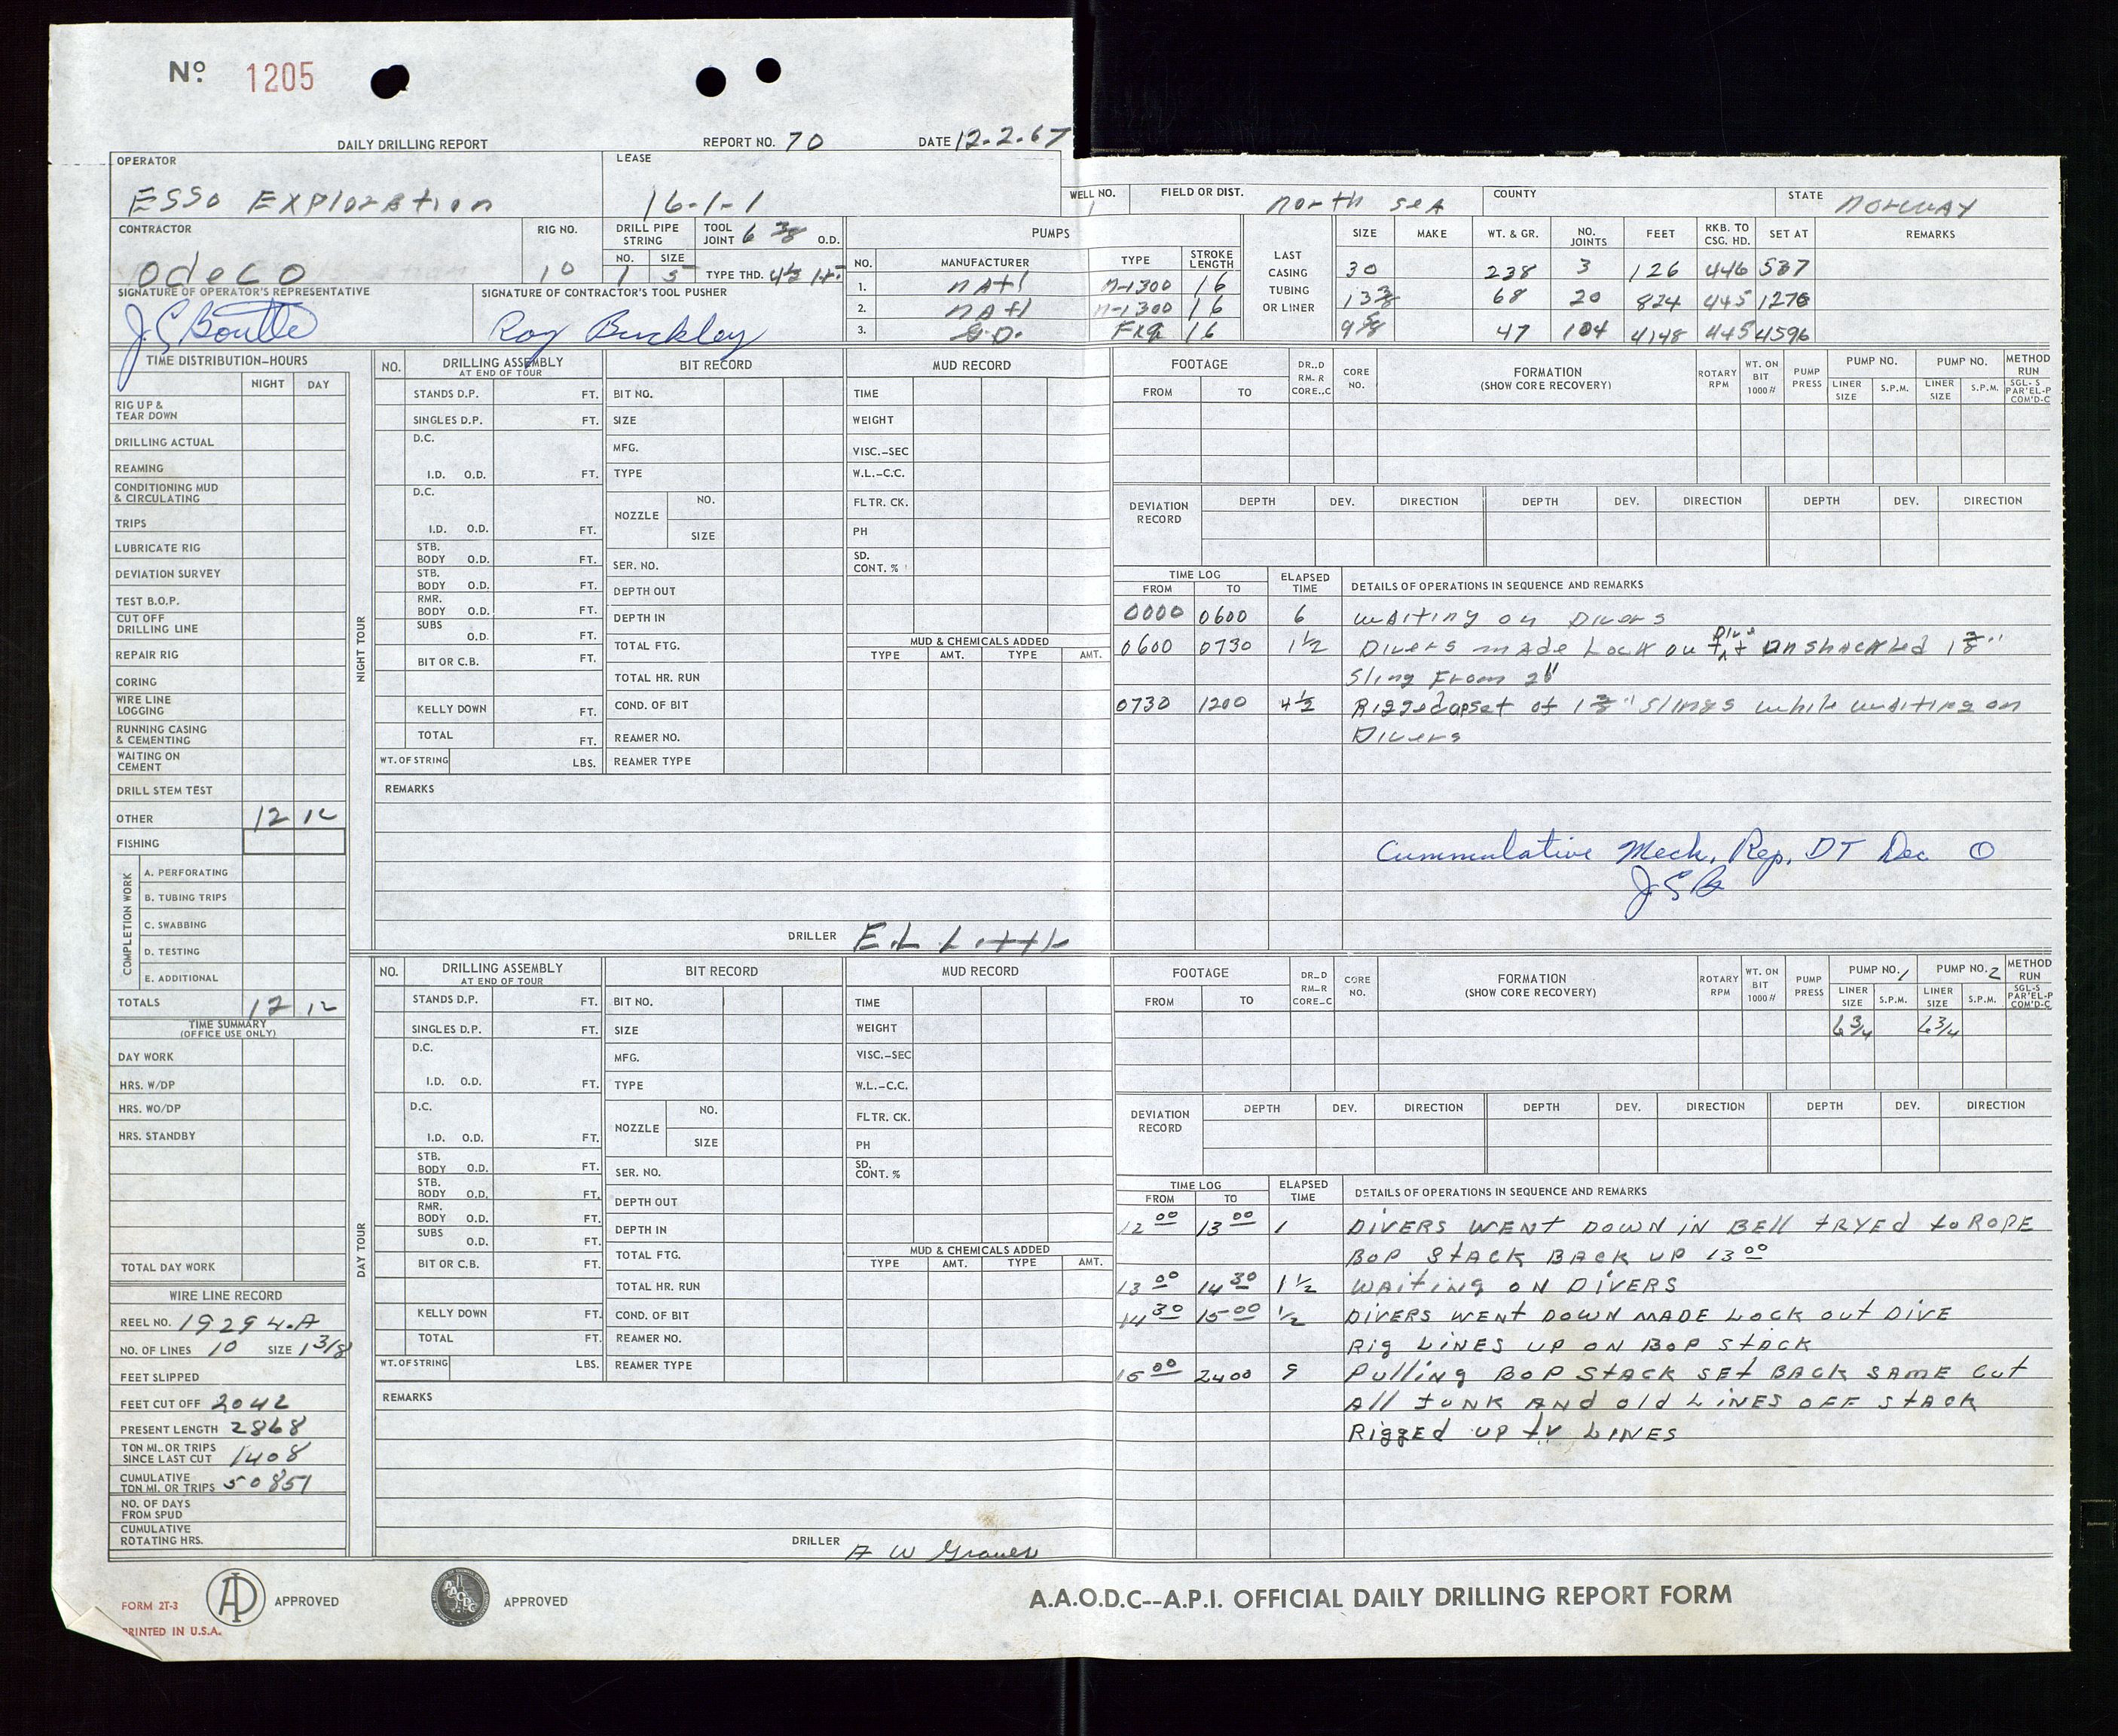 Nº 1205
DAILY DRILLING REPORT REPORT NO. 70 DATE 12-2-67
OPERATOR ESSO EXPLORATION
LEASE 16-1-1
WELL NO. 1 FIELD OR DIST. North Sea COUNTY STATE Norway
CONTRACTOR Odeco RIG NO. 10
DRILL PIPE STRING NO. 1 SIZE 5 TOOL JOINT 6 3/8 O.D. TYPE THD. 4½
SIGNATURE OF OPERATOR'S REPRESENTATIVE J.E. Boutte
SIGNATURE OF CONTRACTOR'S TOOL PUSHER Roy Buckley
PUMPS
NO. MANUFACTURER TYPE STROKE LENGTH
1. Natl N-1300 16
2. Natl N-1300 16
3. G.D. FXQ 16
LAST CASING TUBING OR LINER
SIZE MAKE WT. & GR. NO. JOINTS FEET RKB. TO CSG. HD. SET AT REMARKS
30 238 3 126 446 537
13 3/8 68 20 824 445 1276
9 5/8 47 104 4148 445 4596
TIME DISTRIBUTION-HOURS
NIGHT DAY
RIG UP & TEAR DOWN
DRILLING ACTUAL
REAMING
CONDITIONING MUD & CIRCULATING
TRIPS
LUBRICATE RIG
DEVIATION SURVEY
TEST B.O.P.
CUT OFF DRILLING LINE
REPAIR RIG
CORING
WIRE LINE LOGGING
RUNNING CASING & CEMENTING
WAITING ON CEMENT
DRILL STEM TEST
OTHER 12 12
FISHING
COMPLETION WORK
A. PERFORATING
B. TUBING TRIPS
C. SWABBING
D. TESTING
E. ADDITIONAL
TOTALS 12 12
TIME SUMMARY (OFFICE USE ONLY)
DAY WORK
HRS. W/DP
HRS. WO/DP
HRS. STANDBY
TOTAL DAY WORK
WIRE LINE RECORD
REEL NO. 19294-A
NO. OF LINES 10 SIZE 1 3/8
FEET SLIPPED
FEET CUT OFF 2042
PRESENT LENGTH 2868
TON MI. OR TRIPS SINCE LAST CUT 1408
CUMULATIVE TON MI. OR TRIPS 50851
NO. OF DAYS FROM SPUD
CUMULATIVE ROTATING HRS.
NIGHT TOUR
NO. DRILLING ASSEMBLY AT END OF TOUR BIT RECORD MUD RECORD
STANDS D.P. FT. BIT NO. TIME
SINGLES D.P. FT. SIZE WEIGHT
D.C. MFG. VISC.-SEC
I.D. O.D. FT. TYPE W.L.-C.C.
D.C. NOZZLE NO. FLTR. CK.
I.D. O.D. FT. SIZE PH
STB. BODY O.D. FT. SER. NO. SD. CONT. %
STB. BODY O.D. FT. DEPTH OUT
RMR. BODY O.D. FT. DEPTH IN
SUBS O.D. FT. TOTAL FTG. MUD & CHEMICALS ADDED
BIT OR C.B. FT. TOTAL HR. RUN TYPE AMT. TYPE AMT.
KELLY DOWN FT. COND. OF BIT
TOTAL FT. REAMER NO.
WT. OF STRING LBS. REAMER TYPE
REMARKS
DRILLER E.L Little
FOOTAGE FROM TO DR.-D RM.-R CORE..C CORE NO. FORMATION (SHOW CORE RECOVERY) ROTARY RPM WT. ON BIT 1000# PUMP PRESS PUMP NO. LINER SIZE S.P.M. PUMP NO. LINER SIZE S.P.M. METHOD RUN SGL-S PAR'EL-P COM'D-C
DEVIATION RECORD DEPTH DEV. DIRECTION DEPTH DEV. DIRECTION DEPTH DEV. DIRECTION
TIME LOG FROM TO ELAPSED TIME DETAILS OF OPERATIONS IN SEQUENCE AND REMARKS
0000 0600 6 Waiting on Divers
0600 0730 1½ Divers made Lock out Dive + unshackled 1 3/8"
Sling From 2"
0730 1200 4½ Rigged up set of 1 3/8" Slings while waiting on
Divers
Cummulative Mech. Rep. DT Dec. 0
JEB
DAY TOUR
NO. DRILLING ASSEMBLY AT END OF TOUR BIT RECORD MUD RECORD
STANDS D.P. FT. BIT NO. TIME
SINGLES D.P. FT. SIZE WEIGHT
D.C. MFG. VISC.-SEC
I.D. O.D. FT. TYPE W.L.-C.C.
D.C. NOZZLE NO. FLTR. CK.
I.D. O.D. FT. SIZE PH
STB. BODY O.D. FT. SER. NO. SD. CONT. %
STB. BODY O.D. FT. DEPTH OUT
RMR. BODY O.D. FT. DEPTH IN
SUBS O.D. FT. TOTAL FTG. MUD & CHEMICALS ADDED
BIT OR C.B. FT. TOTAL HR. RUN TYPE AMT. TYPE AMT.
KELLY DOWN FT. COND. OF BIT
TOTAL FT. REAMER NO.
WT. OF STRING LBS. REAMER TYPE
REMARKS
DRILLER A W Graves
FOOTAGE FROM TO DR..D RM-R CORE-C CORE NO. FORMATION (SHOW CORE RECOVERY) ROTARY RPM WT. ON BIT 1000# PUMP PRESS PUMP NO. 1 LINER SIZE S.P.M. PUMP NO. 2 LINER SIZE S.P.M. METHOD RUN SGL-S PAR'EL-P COM'D-C
6 3/4 6 3/4
DEVIATION RECORD DEPTH DEV. DIRECTION DEPTH DEV. DIRECTION DEPTH DEV. DIRECTION
TIME LOG FROM TO ELAPSED TIME DETAILS OF OPERATIONS IN SEQUENCE AND REMARKS
12 00 13 00 1 DIVERS WENT DOWN IN BELL TRYED to ROPE
BOP STACK BACK UP 13 00
13 00 14 30 1½ WAITING ON DIVERS
14 30 15 00 ½ DIVERS WENT DOWN MADE LOCK OUT DIVE
Rig LINES UP ON BOP STACK
15 00 2400 9 Pulling BOP STACK SET BACK SAME CUT
All JUNK AND Old LINES OFF STACK
Rigged UP TV LINES
FORM 2T-3
PRINTED IN U.S.A.
APPROVED
APPROVED
A.A.O.D.C--A.P.I. OFFICIAL DAILY DRILLING REPORT FORM